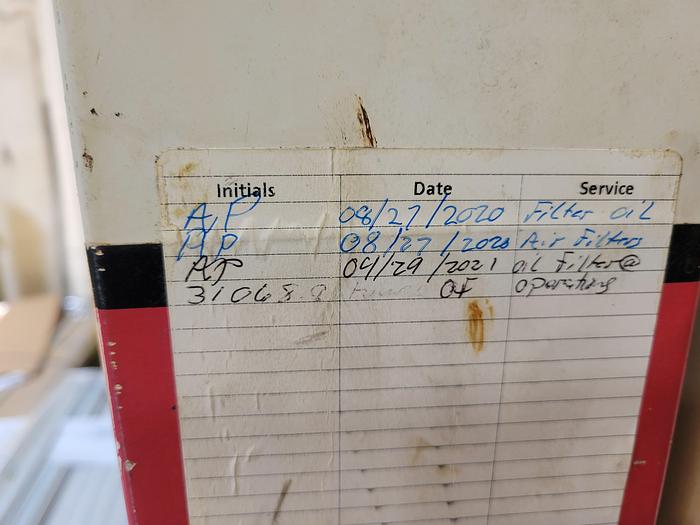 Initials Date Service
A,P 08/27/2020 Filter oil
A,P 08/27/2020 Air Filters
AP 04/29/2021 oil Filter@
31068.9 hours OF operating